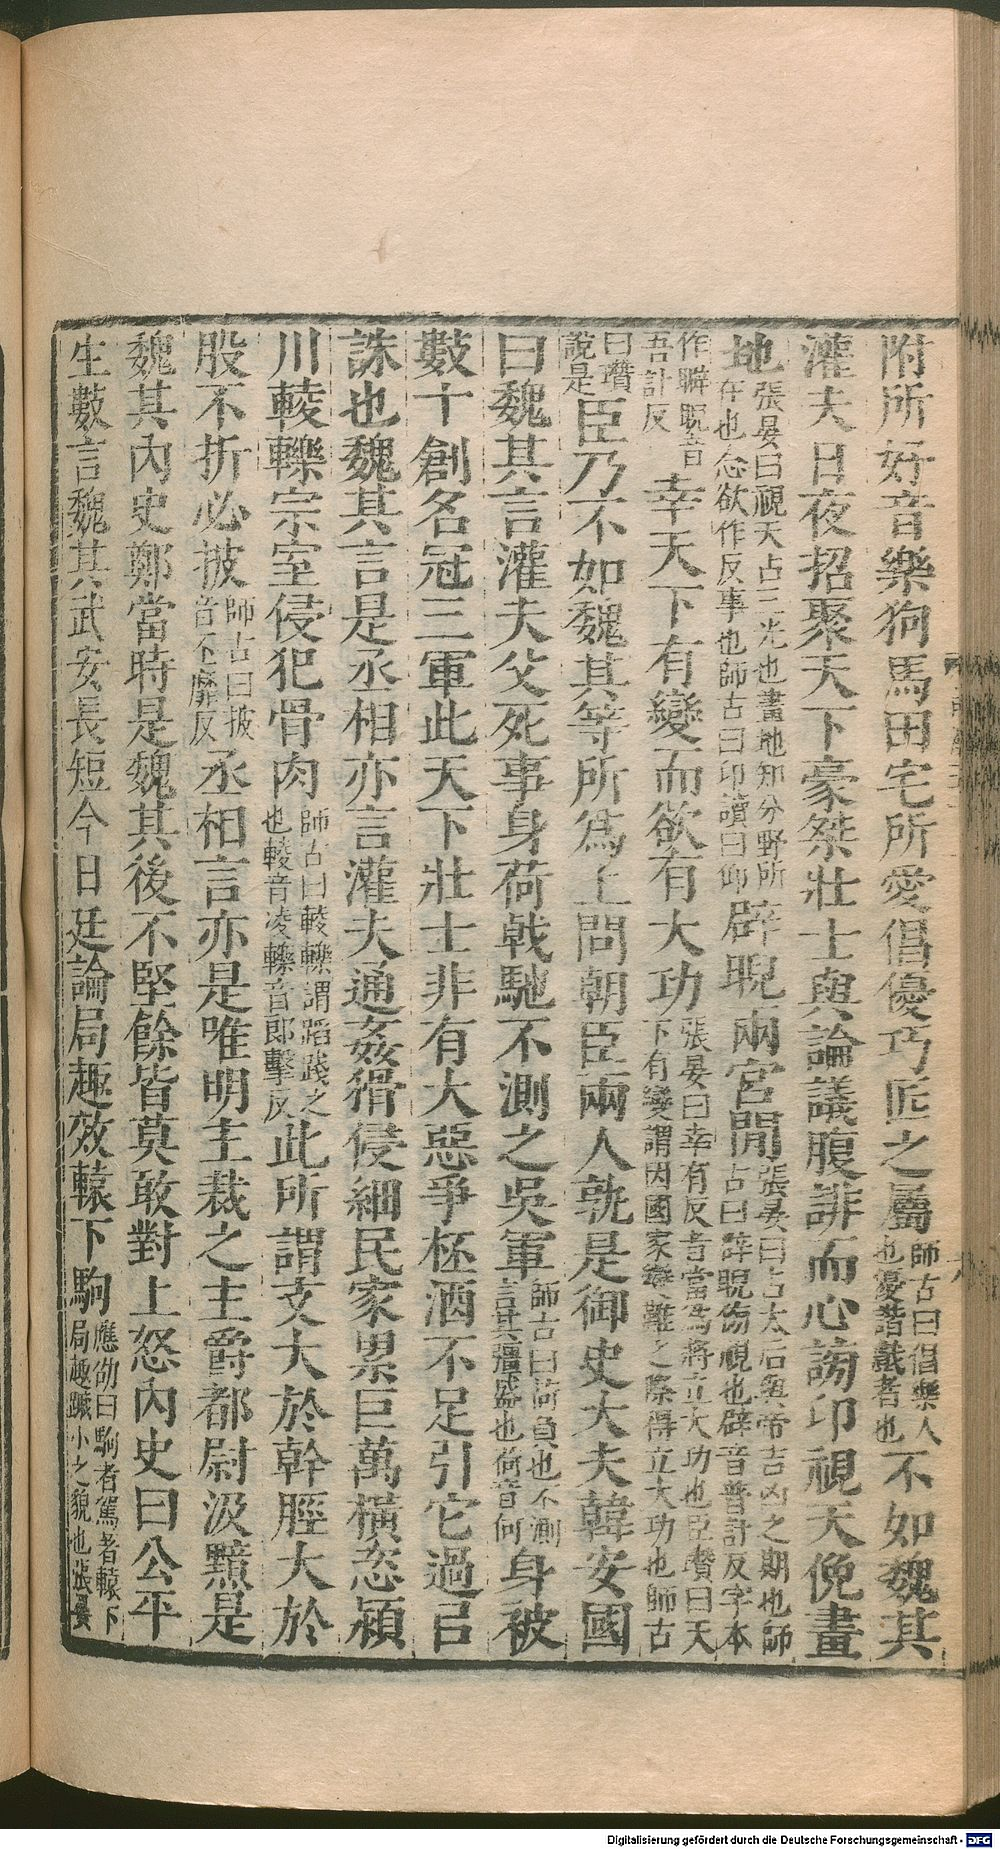 附所好音樂狗馬田宅所愛倡優巧匠之屬師古曰倡樂人也優諧戲者也不如魏其
灌夫日夜招聚天下豪桀壯士與論議腹誹而心謗卬視天俛畫
地張晏曰視天占三光也畫地知分野所在也念欲作反事也師古曰卬讀曰仰辟睨兩宮間張晏曰占太后與帝吉凶之期也師古曰辟睨傍視也辟音普計反字本
作睥睨音吾計反幸天下有變而欲有大功張晏曰幸有反者當爲將立大功也臣瓚曰天下有變謂因國家變難之際得立大功也師古
曰瓚說是臣乃不如魏其等所爲上問朝臣兩人孰是御史大夫韓安國
曰魏其言灌夫父死事身荷戟馳不測之吳軍師古曰荷負也不測言其彊盛也荷音何身被
數十創名冠三軍此天下壯士非有大惡爭桮酒不足引它過㠯
誅也魏其言是丞相亦言灌夫通姦猾侵細民家累巨萬橫恣潁
川輘轢宗室侵犯骨肉師古曰輘轢謂蹈踐之也輘音凌轢音郎擊反此所謂支大於幹脛大於
股不折必披師古曰披音丕靡反丞相言亦是唯明主裁之主爵都尉汲黯是
魏其內史鄭當時是魏其後不堅餘皆莫敢對上怒內史曰公平
生數言魏其武安長短今日廷論局趣效轅下駒應劭曰駒者駕著轅下局趣蹴小之貌也張晏
Digitalisierung gefördert durch die Deutsche Forschungsgemeinschaft - DFG